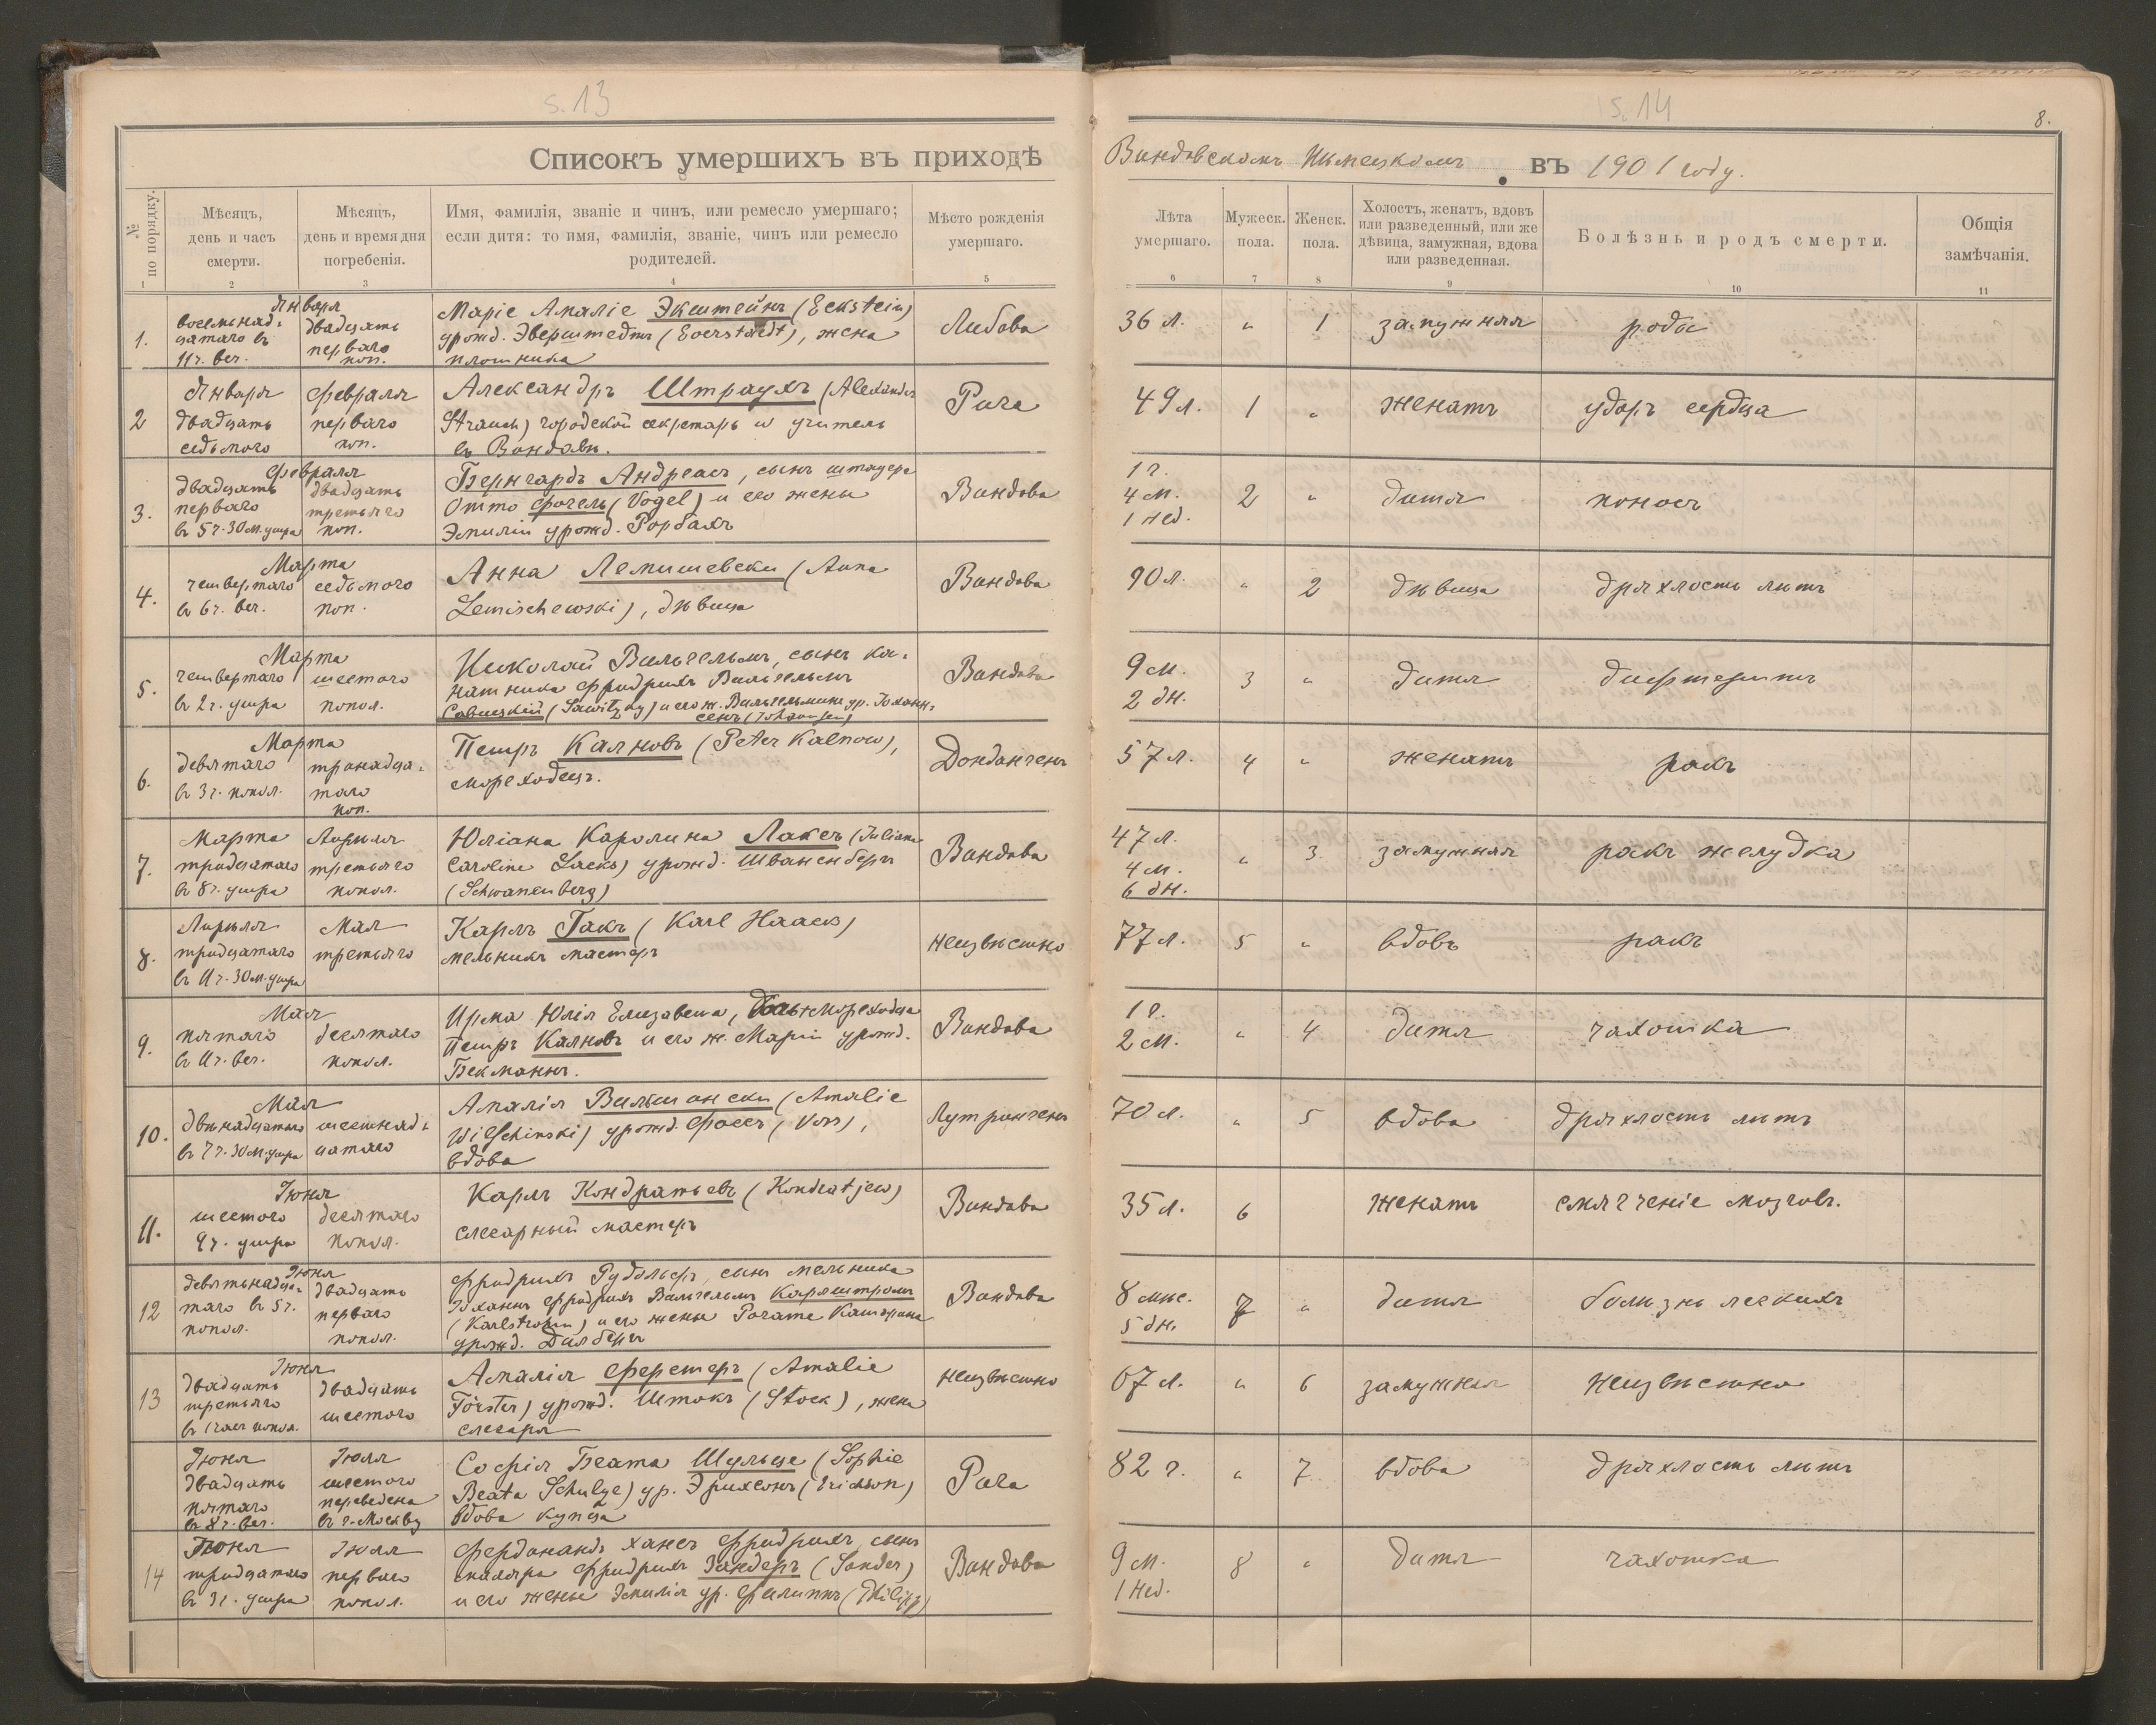 s. 13
s. 14
8.
Списокъ умершихъ въ приходѣ Виндовскомъ Нѣмецкомъ въ 1901 году.
№ по порядку.
Мѣсяцъ, день и часъ смерти.
Мѣсяцъ, день и время дня погребенія.
Имя, фамилія, званіе и чинъ, или ремесло умершаго; если дитя: то имя, фамилія, званіе, чинъ или ремесло родителей.
Мѣсто рожденія умершаго.
Лѣта умершаго.
Мужеск. пола.
Женск. пола.
Холостъ, женатъ, вдовъ или разведенный, или же дѣвица, замужная, вдова или разведенная.
Болѣзнь и родъ смерти.
Общія замѣчанія.
1 2 3 4 5 6 7 8 9 10 11
1.
Января
восемьнад-
цатаго въ
11 ч. веч.
двадцать
перваго
поп.
Маріе Амаліе Экштейнъ (Eckstein)
урожд. Эверштедтъ (Everstaedt), жена
плотника
Либава
36 л. " 1 замужняя роды
2
Января
двадцать
седьмого
Февраля
перваго
поп.
Александръ Штраухъ (Alexander
Strauch) городской секретарь и учитель
въ Виндавѣ.
Рига
49 л. 1 " женатъ ударъ сердца
3.
Февраля
двадцать
перваго
въ 5 ч. 30 м. утра
двадцать
третьяго
поп.
Бернгардъ Андреасъ, сынъ
Отто Фогель (Vogel) и его жены
Эмиліи урожд. Рорбахъ
Виндава
1 г.
4 м.
1 нед.
2 " дитя поносъ
4.
Марта
четвертаго
въ 6 ч. веч.
седьмого
поп.
Анна Лемишевски (Anna
Lemischewski), дѣвица
Виндава
90 л. " 2 дѣвица дряхлость лѣтъ
5.
Марта
четвертаго
въ 2 ч. утра
шестого
попол.
Николай Вильгельмъ, сынъ ка-
натника Фридрихъ Вильгельмъ
Савицкій (Sawitzky) и его ж. Вильгельмине ур. Іоханн-
сенъ (Johannsen)
Виндава
9 м.
2 дн.
3 " дитя дифтеритъ
6.
Марта
девятаго
въ 3 ч. попол.
тринадца-
таго
поп.
Петръ Калновъ (Peter Kalnow),
мореходецъ.
Донданgенъ
57 л. 4 " женатъ ракъ
7.
Марта
тридцатаго
въ 8 ч. утра
Апрѣля
третьяго
попол.
Юліана Каролина Лаксъ (Juliana
Caroline Lacks) урожд. Шваненбергъ
(Schwanenberg)
Виндава
47 л.
4 м.
6 дн.
" 3 замужняя ракъ желудка
8.
Апрѣля
тридцатаго
въ 11 ч. 30 м. утра
Мая
третьяго
Карлъ Гакъ (Karl Haack)
мельникъ мастеръ
неизвѣстно
77 л. 5 " вдовъ ракъ
9.
Мая
пятаго
въ 11 ч. веч.
десятаго
попол.
Ирма Юлія Елизавета, дочь мореходца
Петръ Калновъ и его ж. Маріи урожд.
Бекманнъ.
Виндава
1 г.
2 м.
" 4 дитя чахотка
10.
Мая
двѣнадцатаго
въ 7 ч. 30 м. утра
шестнад-
цатаго
Амалія Вильшински (Amalie
Wilschinski) урожд. Фоссъ (Voss),
вдова
Лутрингенъ
70 л. " 5 вдова дряхлость лѣтъ
11.
Іюня
шестого
9 ч. утра
десятаго
попол.
Карлъ Кондратьевъ (Kondratjew)
слесарный мастеръ
Виндава
35 л. 6 женатъ смягченіе мозговъ.
12
Іюня
девятьнадца-
таго въ 5 ч.
попол.
двадцать
перваго
попол.
Фридрихъ Рудольфъ, сынъ мельника
Іоханъ Фридрихъ Вильгельмъ Карлштромъ
(Karlstrohm) и его жены Рогате Катарина
урожд. Далбергъ
Виндава
8 мѣс.
5 дн.
7 " дитя болѣзнь легкихъ
13
Іюня
двадцать
третьяго
въ 1 часъ попол.
двадцать
шестого
Амалія Ферстеръ (Amalie
Förster) урожд. Штокъ (Stock), жена
слесаря
неизвѣстно
67 л. " 6 замужняя неизвѣстно
14
Іюня
двадцать
пятаго
въ 8 ч. веч.
Іюля
шестого
переведена
въ г. Москву
Софія Беата Шульце (Sophie
Beata Schulze) ур. Эрихсонъ (Erichson)
вдова купца
Рига
82 г. " 7 вдова дряхлость лѣтъ
Іюня
тридцатаго
въ 3 ч. утра
Іюля
перваго
попол.
Фердинандъ Хансъ Фридрихъ, сынъ
столяра Фридрихъ Зандеръ (Sander)
и его жены Эмилія ур. Филиппъ (Philipp)
Виндава
9 м.
1 нед.
8 " дитя чахотка